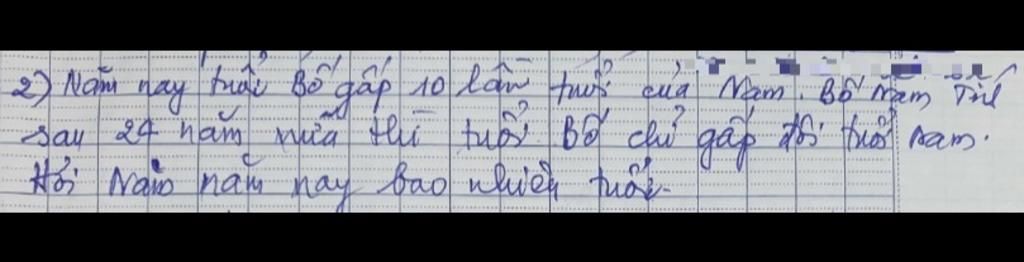 2) Năm nay tuổi Bố gấp 10 lần tuổi của Nam. Bố Nam Tính
sau 24 năm nữa thì tuổi Bố chỉ gấp đôi tuổi Nam.
Hỏi Nam năm nay bao nhiêu tuổi.